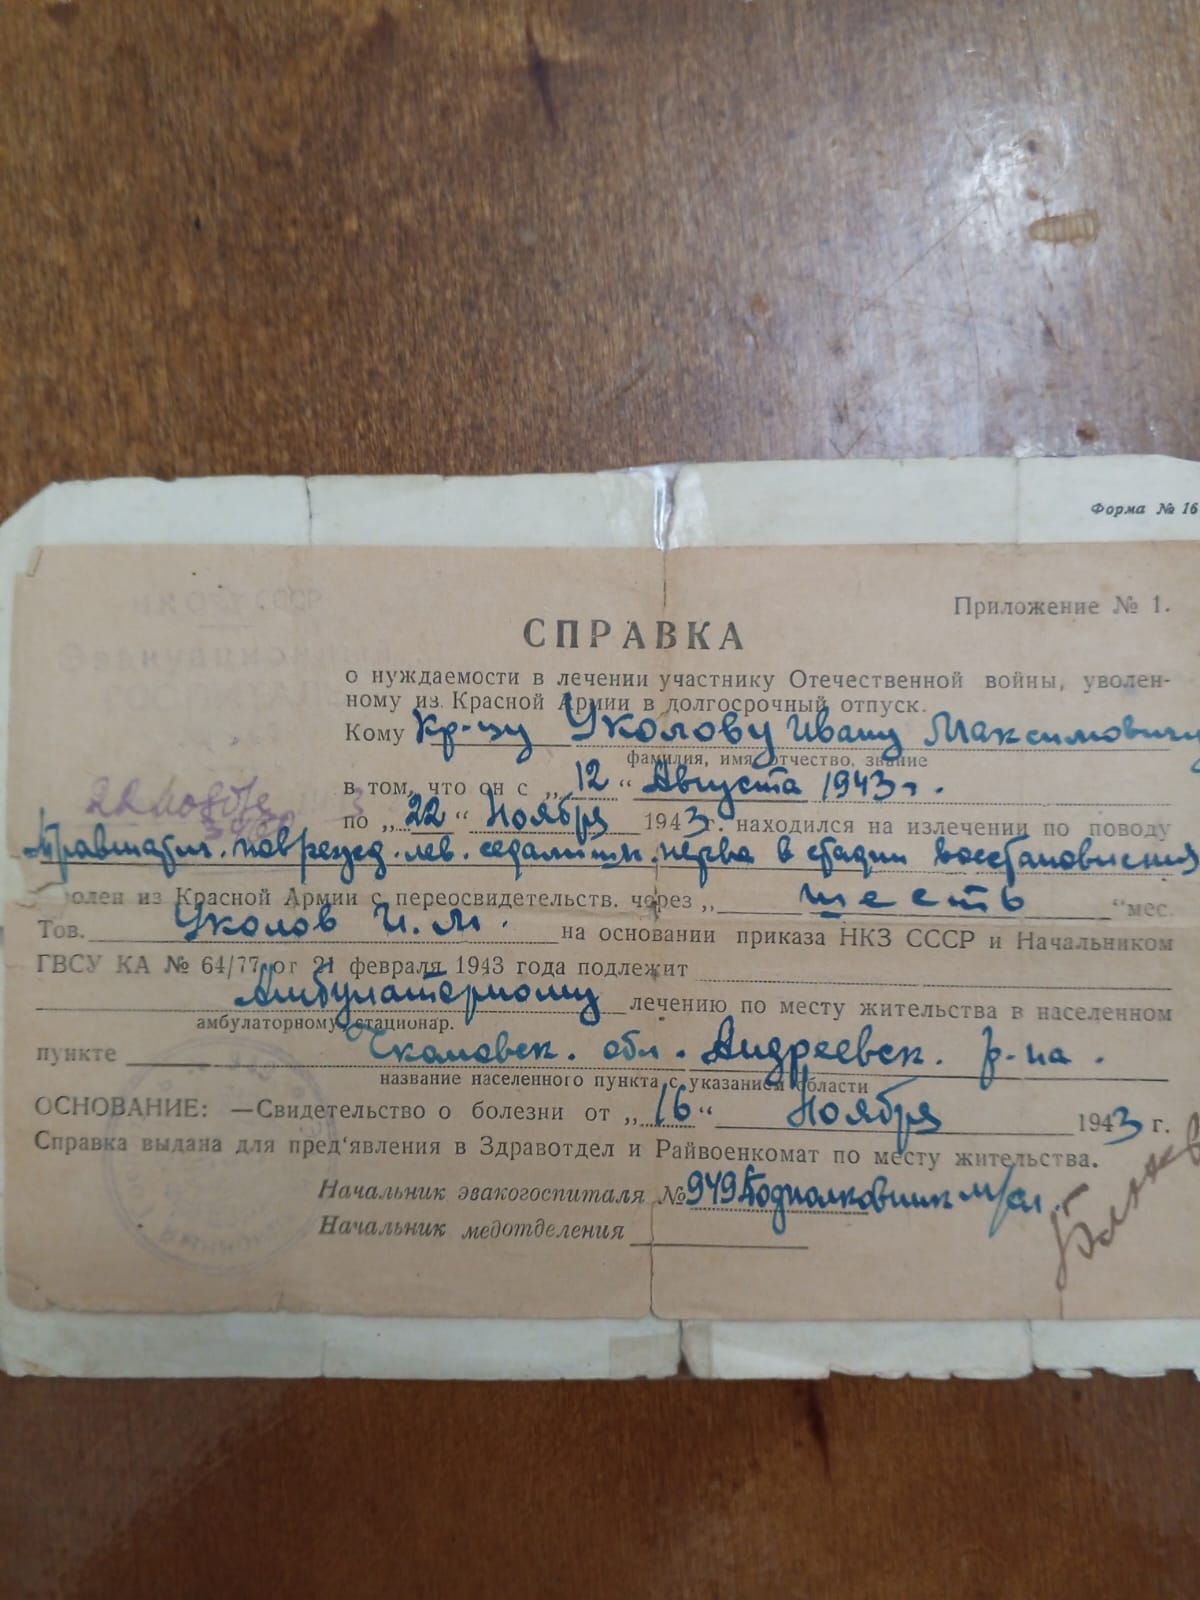 Форма № 16
Приложение № 1.
СПРАВКА
о нуждаемости в лечении участнику Отечественной войны, уволен-
ному из Красной Армии в долгосрочный отпуск.
Кому Кр-цу Уколову Ивану Максимовичу
фамилия, имя, отчество, звание
в том, что он с „12“ Августа 1943 г.
22 ноября 3
по „22“ Ноября 1943 г. находился на излечении по поводу
Травматич. поврежд. лев. седалищн. нерва в стадии восстановления
волен из Красной Армии с переосвидетельств. через „ шесть “ мес.
Тов. Уколов И. М. на основании приказа НКЗ СССР и Начальником
ГВСУ КА № 64/77 от 21 февраля 1943 года подлежит
Амбулаторному лечению по месту жительства в населенном
амбулаторному, стационар.
пункте Чкаловск. обл. Андреевск. р-на.
название населенного пункта с указанием области
ОСНОВАНИЕ: —Свидетельство о болезни от „16“ Ноября 1943 г.
Справка выдана для пред'явления в Здравотдел и Райвоенкомат по месту жительства.
Начальник эвакогоспиталя № 949 Подполковник м/сл.
Начальник медотделения